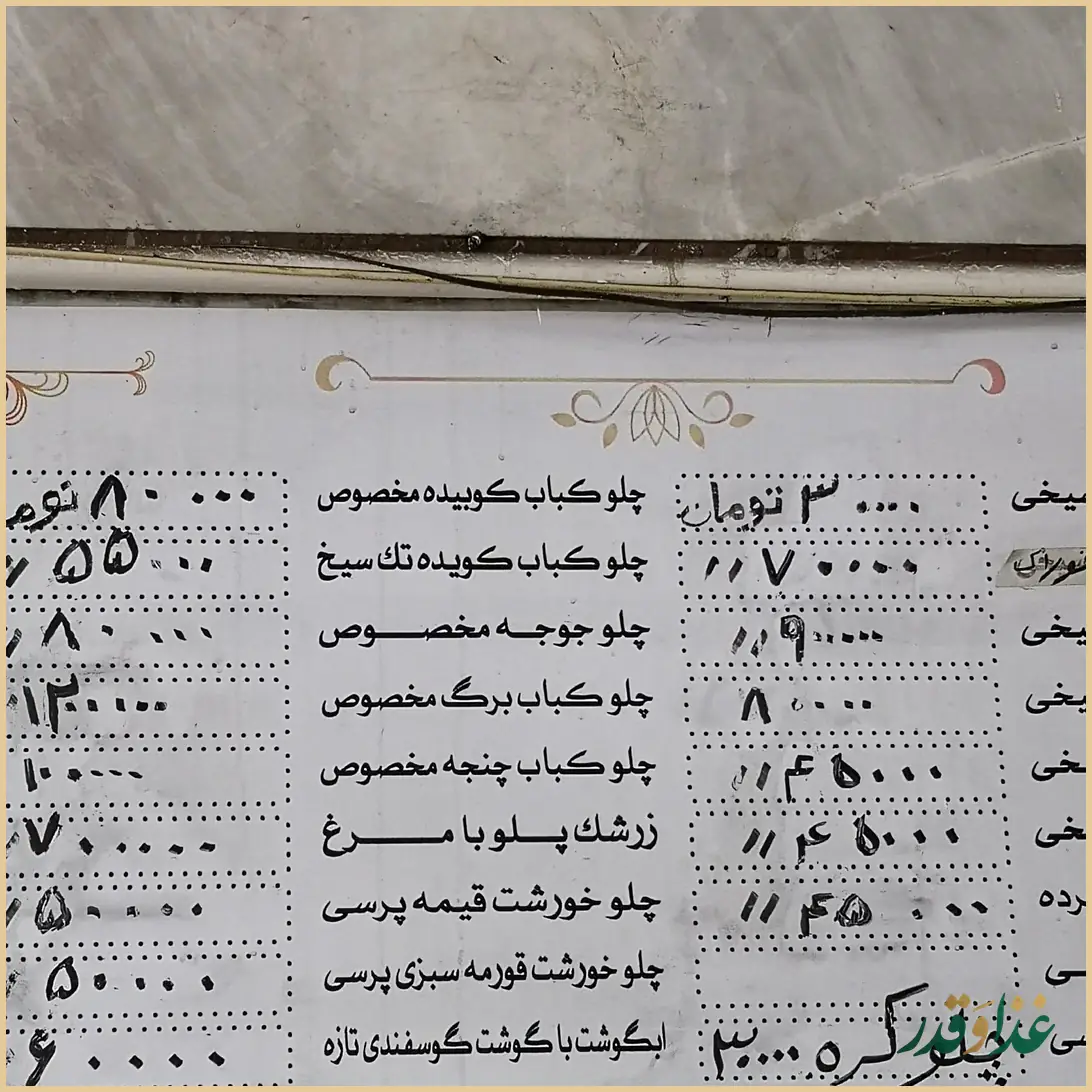 سیخی ۳۰۰۰۰ تومان چلو کباب کوبیده مخصوص ۸۰۰۰۰
۷۰۰۰۰ // چلو کباب کویده تك سیخ ۵۵۰۰۰ //
یخی ۹۰۰۰۰ // چلو جوجه مخصوص ۸۰۰۰۰ //
یخی ۸۰۰۰۰ چلو کباب برگ مخصوص ۱۳۰۰۰۰
خی ۴۵۰۰۰ // چلو کباب چنجه مخصوص ۱۰۰۰۰۰
خی ۴۵۰۰۰ // زرشك پلو با مرغ ۷۰۰۰۰ //
رده ۴۵۰۰۰ // چلو خورشت قیمه پرسی ۵۰۰۰۰ //
ی چلو خورشت قورمه سبزی پرسی ۵۰۰۰۰
سی چلو کره ۳۰۰۰۰ ابگوشت با گوشت گوسفندی تازه ۶۰۰۰۰
غذا و قدر